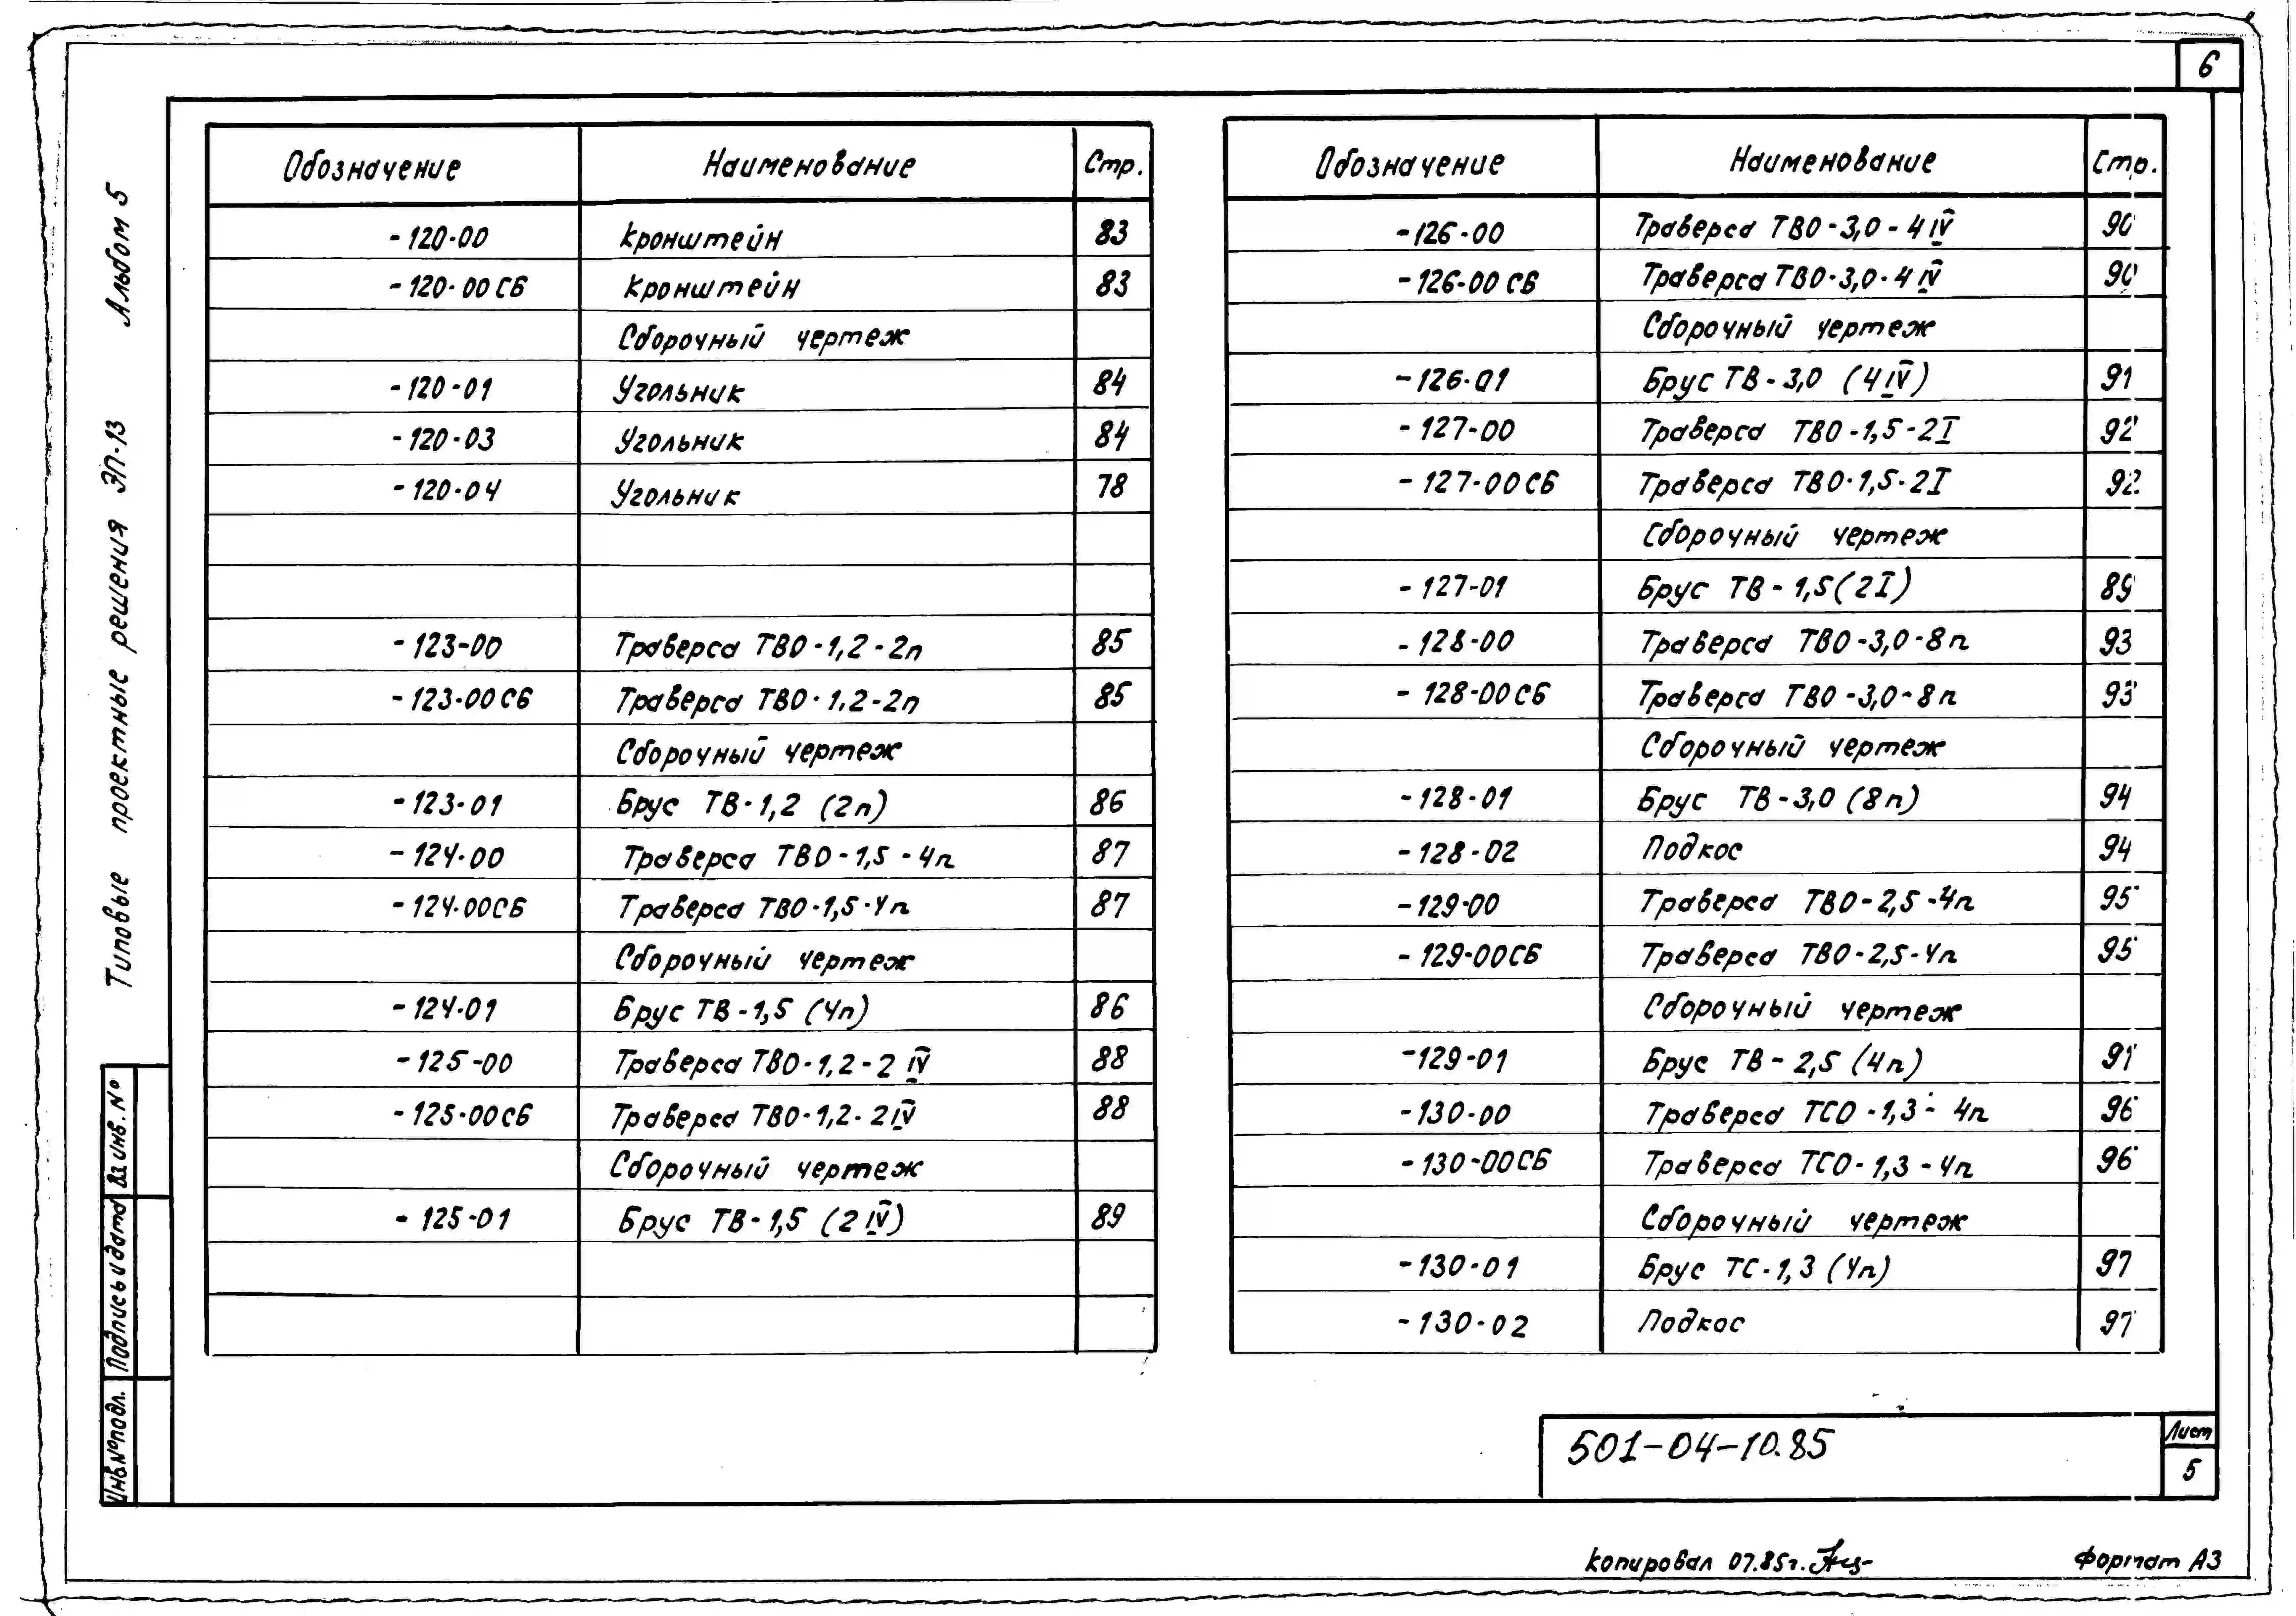 6
Типовые проектные решения ЭП-13 Альбом 5
Обозначение Наименование Стр.
-120-00 Кронштейн 83
-120-00СБ Кронштейн 83
Сборочный чертеж
-120-01 Угольник 84
-120-03 Угольник 84
-120-04 Угольник 78
-123-00 Траверса ТВО-1,2-2п 85
-123-00СБ Траверса ТВО-1,2-2п 85
Сборочный чертеж
-123-01 Брус ТВ-1,2 (2п) 86
-124-00 Траверса ТВО-1,5-4п 87
-124-00СБ Траверса ТВО-1,5-4п 87
Сборочный чертеж
-124-01 Брус ТВ-1,5 (4п) 86
-125-00 Траверса ТВО-1,2-2 IV 88
-125-00СБ Траверса ТВО-1,2-2IV 88
Сборочный чертеж
-125-01 Брус ТВ-1,5 (2 IV) 89
Обозначение Наименование Стр.
-126-00 Траверса ТВО-3,0-4 IV 90
-126-00 СБ Траверса ТВО-3,0-4 IV 90
Сборочный чертеж
-126-01 Брус ТВ-3,0 (4IV) 91
-127-00 Траверса ТВО-1,5-2I 92
-127-00СБ Траверса ТВО-1,5-2I 92
Сборочный чертеж
-127-01 Брус ТВ-1,5(2I) 89
-128-00 Траверса ТВО-3,0-8п 93
-128-00СБ Траверса ТВО-3,0-8п 93
Сборочный чертеж
-128-01 Брус ТВ-3,0 (8п) 94
-128-02 Подкос 94
-129-00 Траверса ТВО-2,5-4п 95
-129-00СБ Траверса ТВО-2,5-4п 95
Сборочный чертеж
-129-01 Брус ТВ-2,5 (4п) 91
-130-00 Траверса ТСО-1,3-4п 96
-130-00СБ Траверса ТСО-1,3-4п 96
Сборочный чертеж
-130-01 Брус ТС-1,3 (4п) 97
-130-02 Подкос 97
Инв.№подл. Подпись и дата Вз.инв.№
501-04-10.85
Лист
5
Копировал 07.85г.
Формат А3